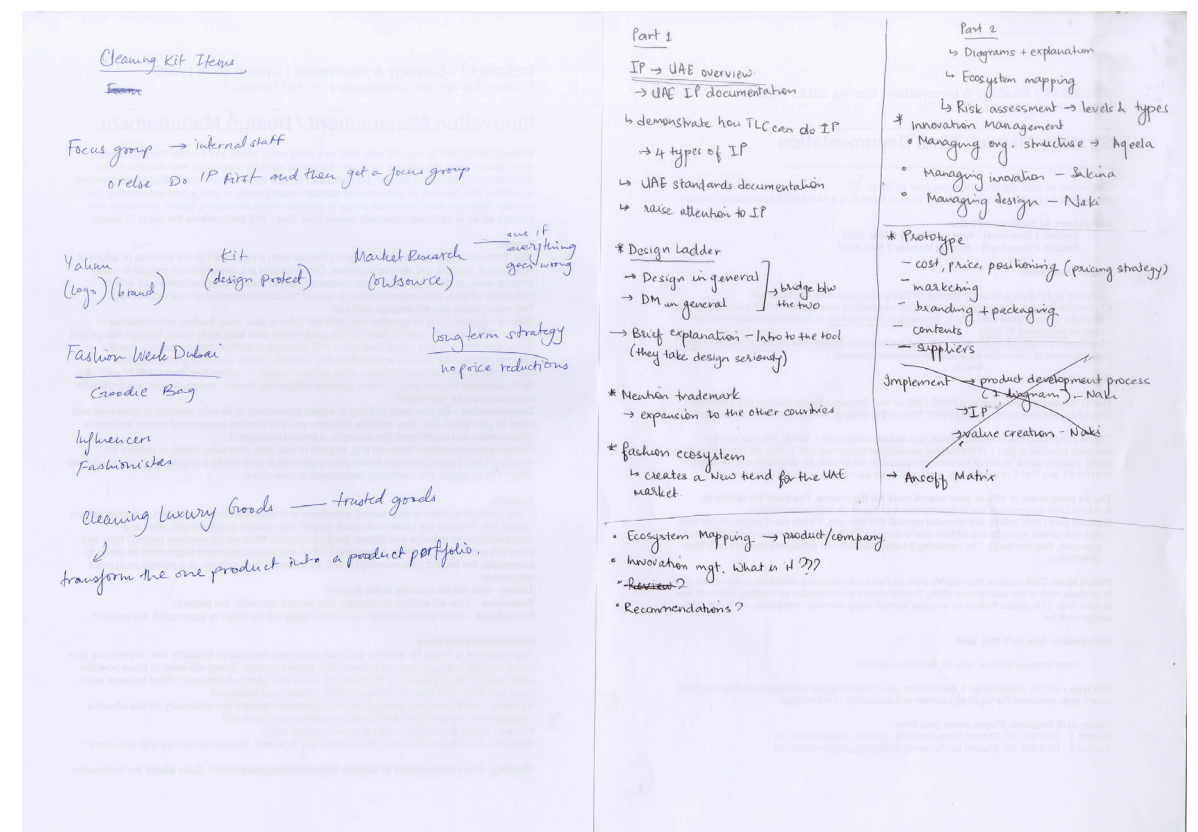 Cleaning Kit Items
Focus group → internal staff
or else Do IP first and then get a focus group
Yahuu
(logo) (brand)
Kit
(design protect)
Market Research
(outsource)
sue if
everything
goes wrong
long term strategy
no price reductions
Fashion Week Dubai
Goodie Bag
Influencers
Fashionistas
Cleaning Luxury Goods — trusted goods
transform the one product into a product portfolio.
Part 1
IP → UAE overview.
→ UAE IP documentation
↳ demonstrate how TLC can do IP
→ 4 types of IP
↳ UAE standards documentation
↳ raise attention to IP
* Design Ladder
→ Design in general
→ DM in general
→ bridge b/w
the two
→ Brief explanation - Intro to the tool
(they take design seriously)
* Mention trademark
→ expansion to the other countries
* fashion ecosystem
↳ creates a New trend for the UAE
market.
Part 2
↳ Diagrams + explanation
↳ Ecosystem mapping
↳ Risk assessment → levels & types
* Innovation Management
• Managing org. structure → Aqeela
• Managing innovation - Sakina
• Managing design - Naki
* Prototype
- cost, price, positioning (pricing strategy)
- marketing
- branding + packaging
- contents
- suppliers
Implement → product development process
(1 diagram) - Naki
→ IP
→ value creation - Naki
→ Ansoff Matrix
• Ecosystem Mapping → product/company
• Innovation mgt. What is it ???
• Review?
• Recommendations?